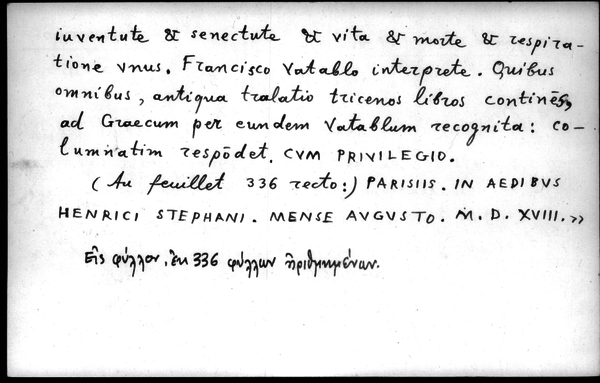 iuventute & senectute & vita & morte & respira-
tione vnus. Francisco Vatablo interprete. Quibus
omnibus, antiqua tralatio tricenos libros continēs,
ad Graecum per eundem Vatablum recognita: co-
lumnatim respōdet. CVM PRIVILEGIO.
(Au feuillet 336 recto:) PARISIIS. IN AEDIBVS
HENRICI STEPHANI. MENSE AVGVSTO. M. D. XVIII. »
Εἰς φύλλον, ἐκ 336 φύλλων ἠριθμημένων.